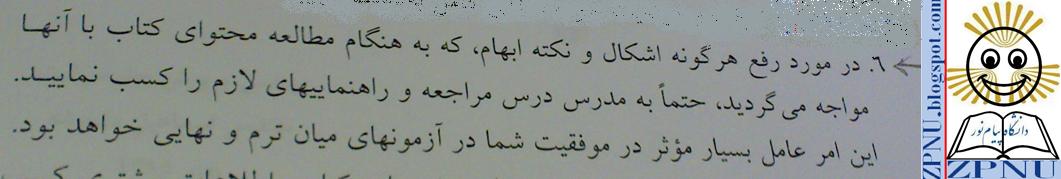 ۶. در مورد رفع هرگونه اشکال و نکته ابهام، که به هنگام مطالعه محتوای کتاب با آنها
مواجه می‌گردید، حتماً به مدرس درس مراجعه و راهنماییهای لازم را کسب نمایید.
این امر عامل بسیار مؤثر در موفقیت شما در آزمونهای میان ترم و نهایی خواهد بود.
ZPNU.blogspot.com
دانشگاه پیام نور
ZPNU